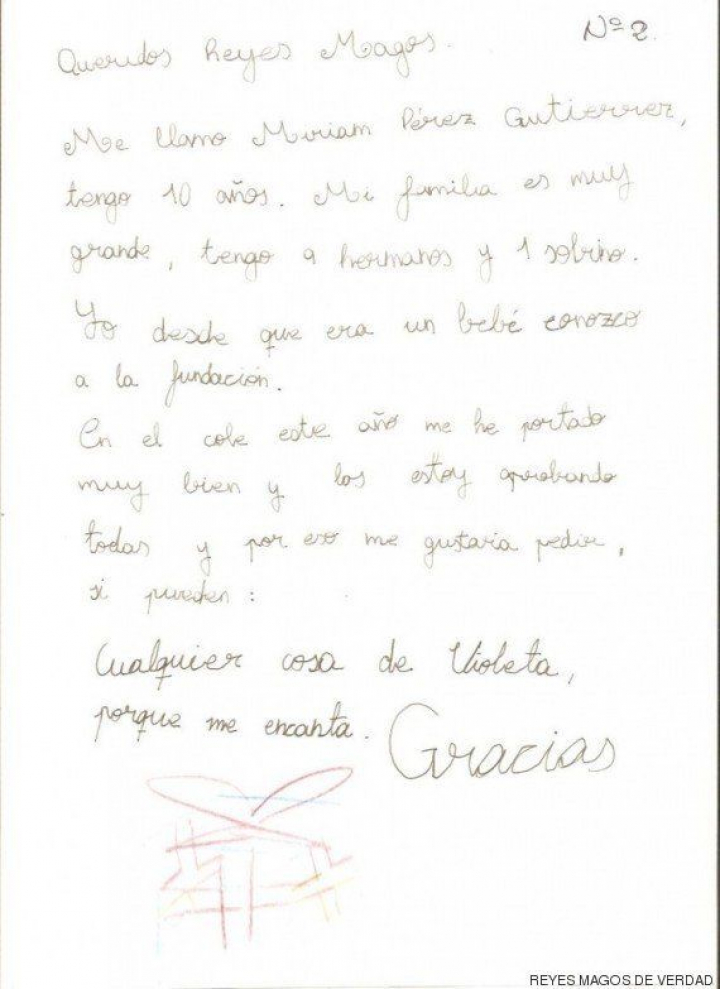 Nº 2.
Queridos Reyes Magos.
Me llamo Miriam Pérez Gutierrez,
tengo 10 años. Mi familia es muy
grande, tengo 9 hermanos y 1 sobrino.
Yo desde que era un bebé conozco
a la fundación.
En el cole este año me he portado
muy bien y las estoy aprobando
todas y por eso me gustaria pedir,
si pueden:
Cualquier cosa de Violeta,
porque me encanta.
Gracias
REYES MAGOS DE VERDAD